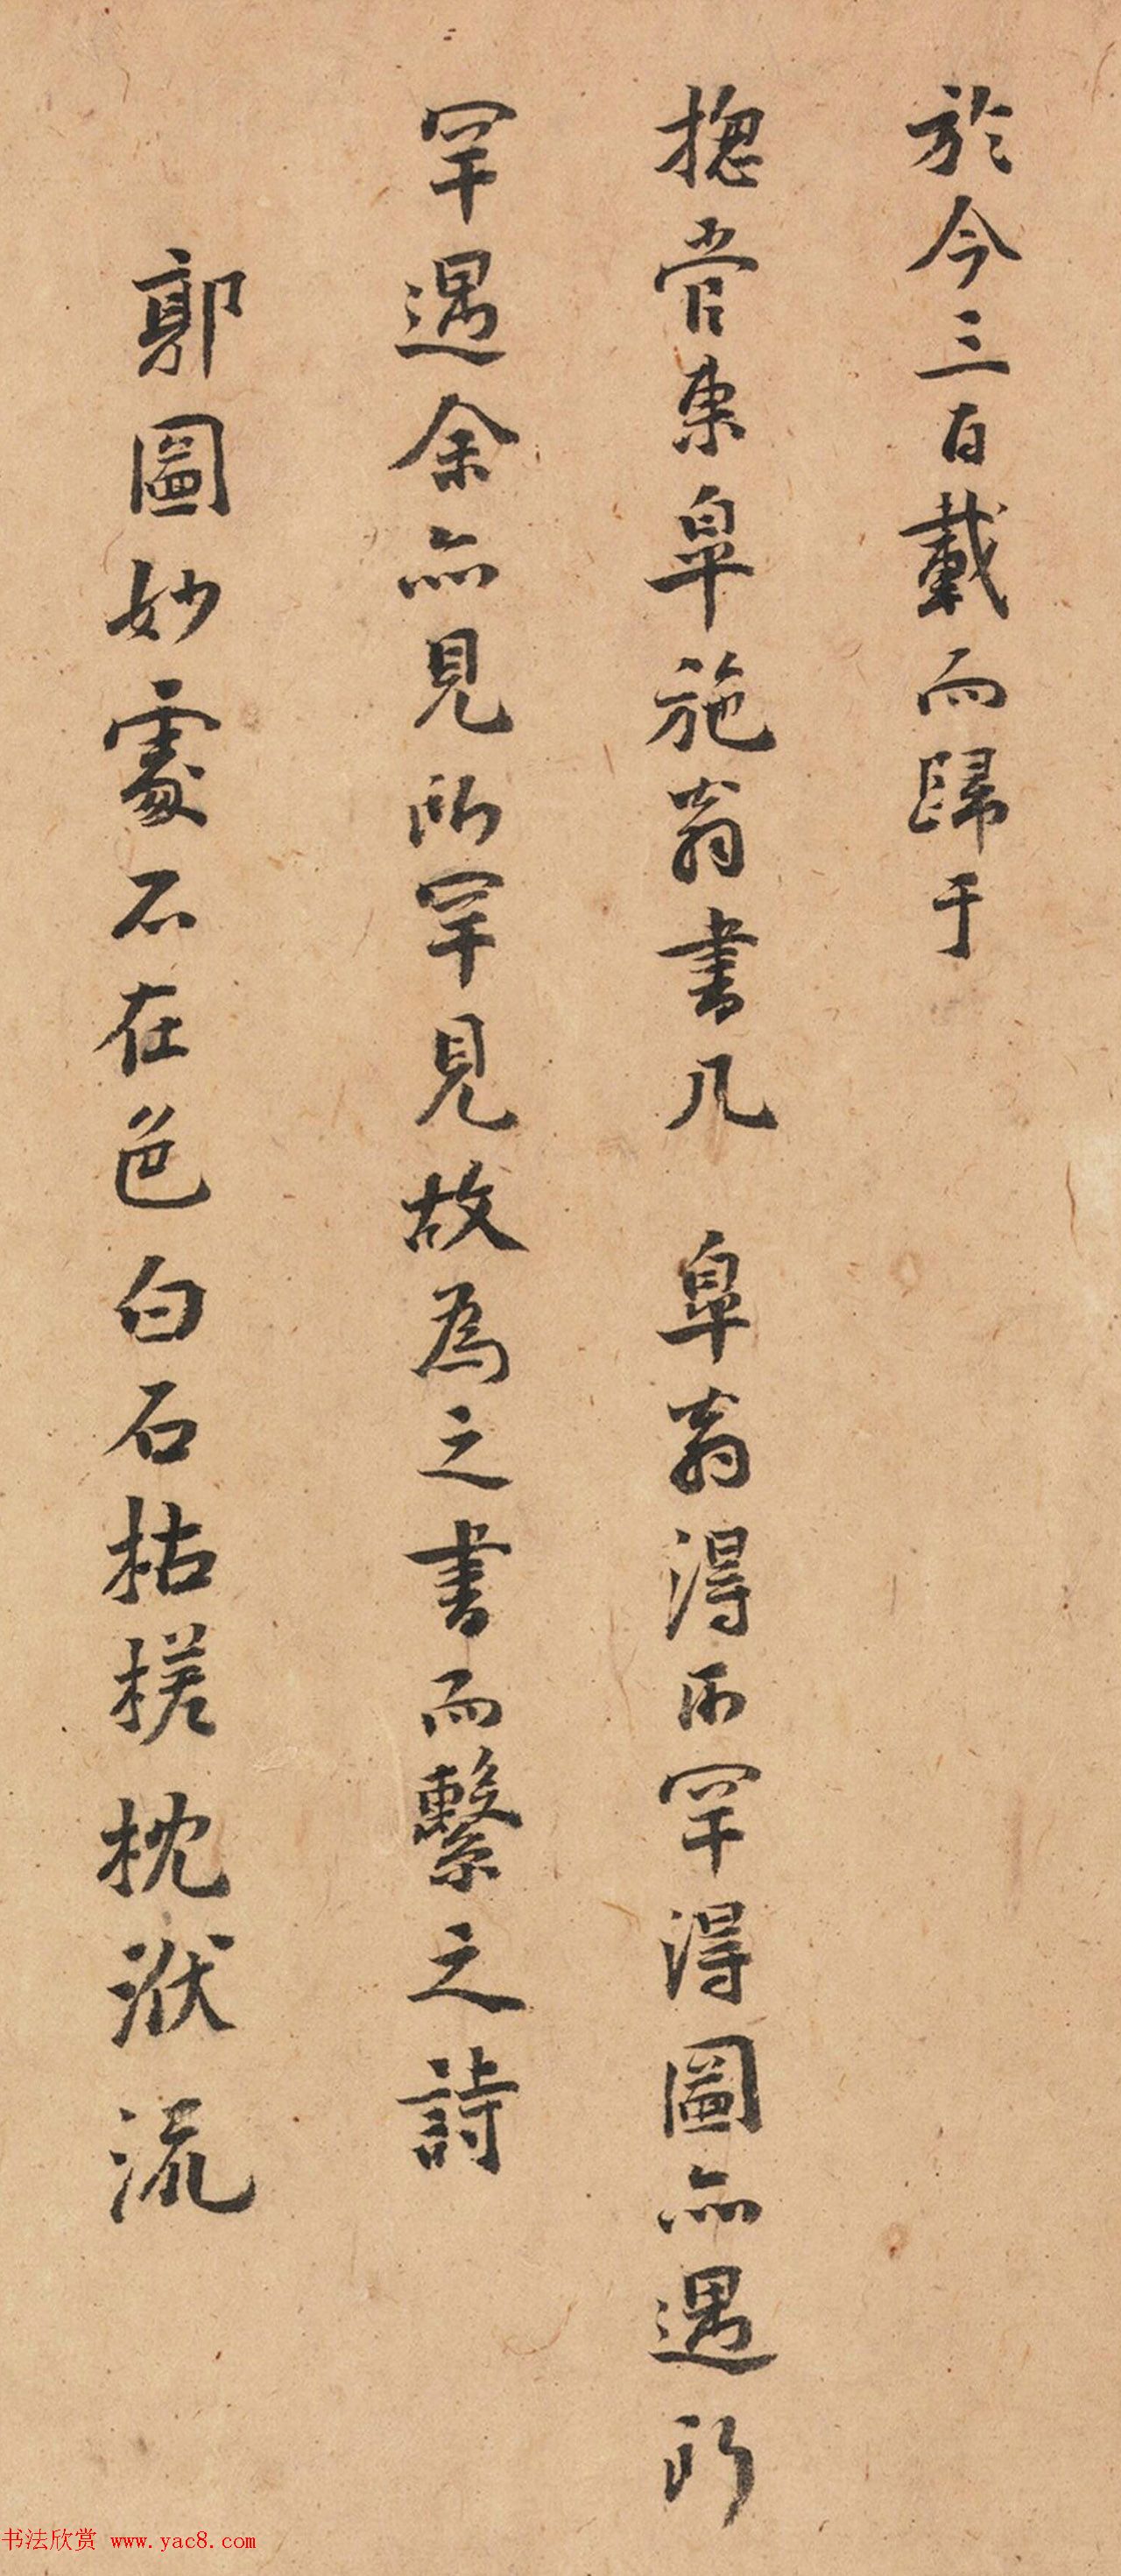 於今三百載而歸于
揔管東皐施翁書几 皐翁得所罕得圖亦遇所
罕遇余亦見所罕見故為之書而繫之詩
郭圖妙處不在色白石枯槎枕洑流
书法欣赏 www.yac8.com